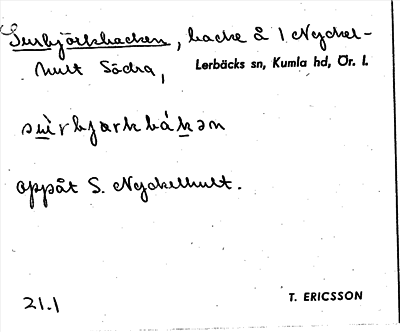 Surbjörksbacken, backe å 1 Nyckel-
hult Södra, Lerbäcks sn, Kumla hd, Ör. l.
oppåt S. Nyckelhult.
21.1 T. ERICSSON